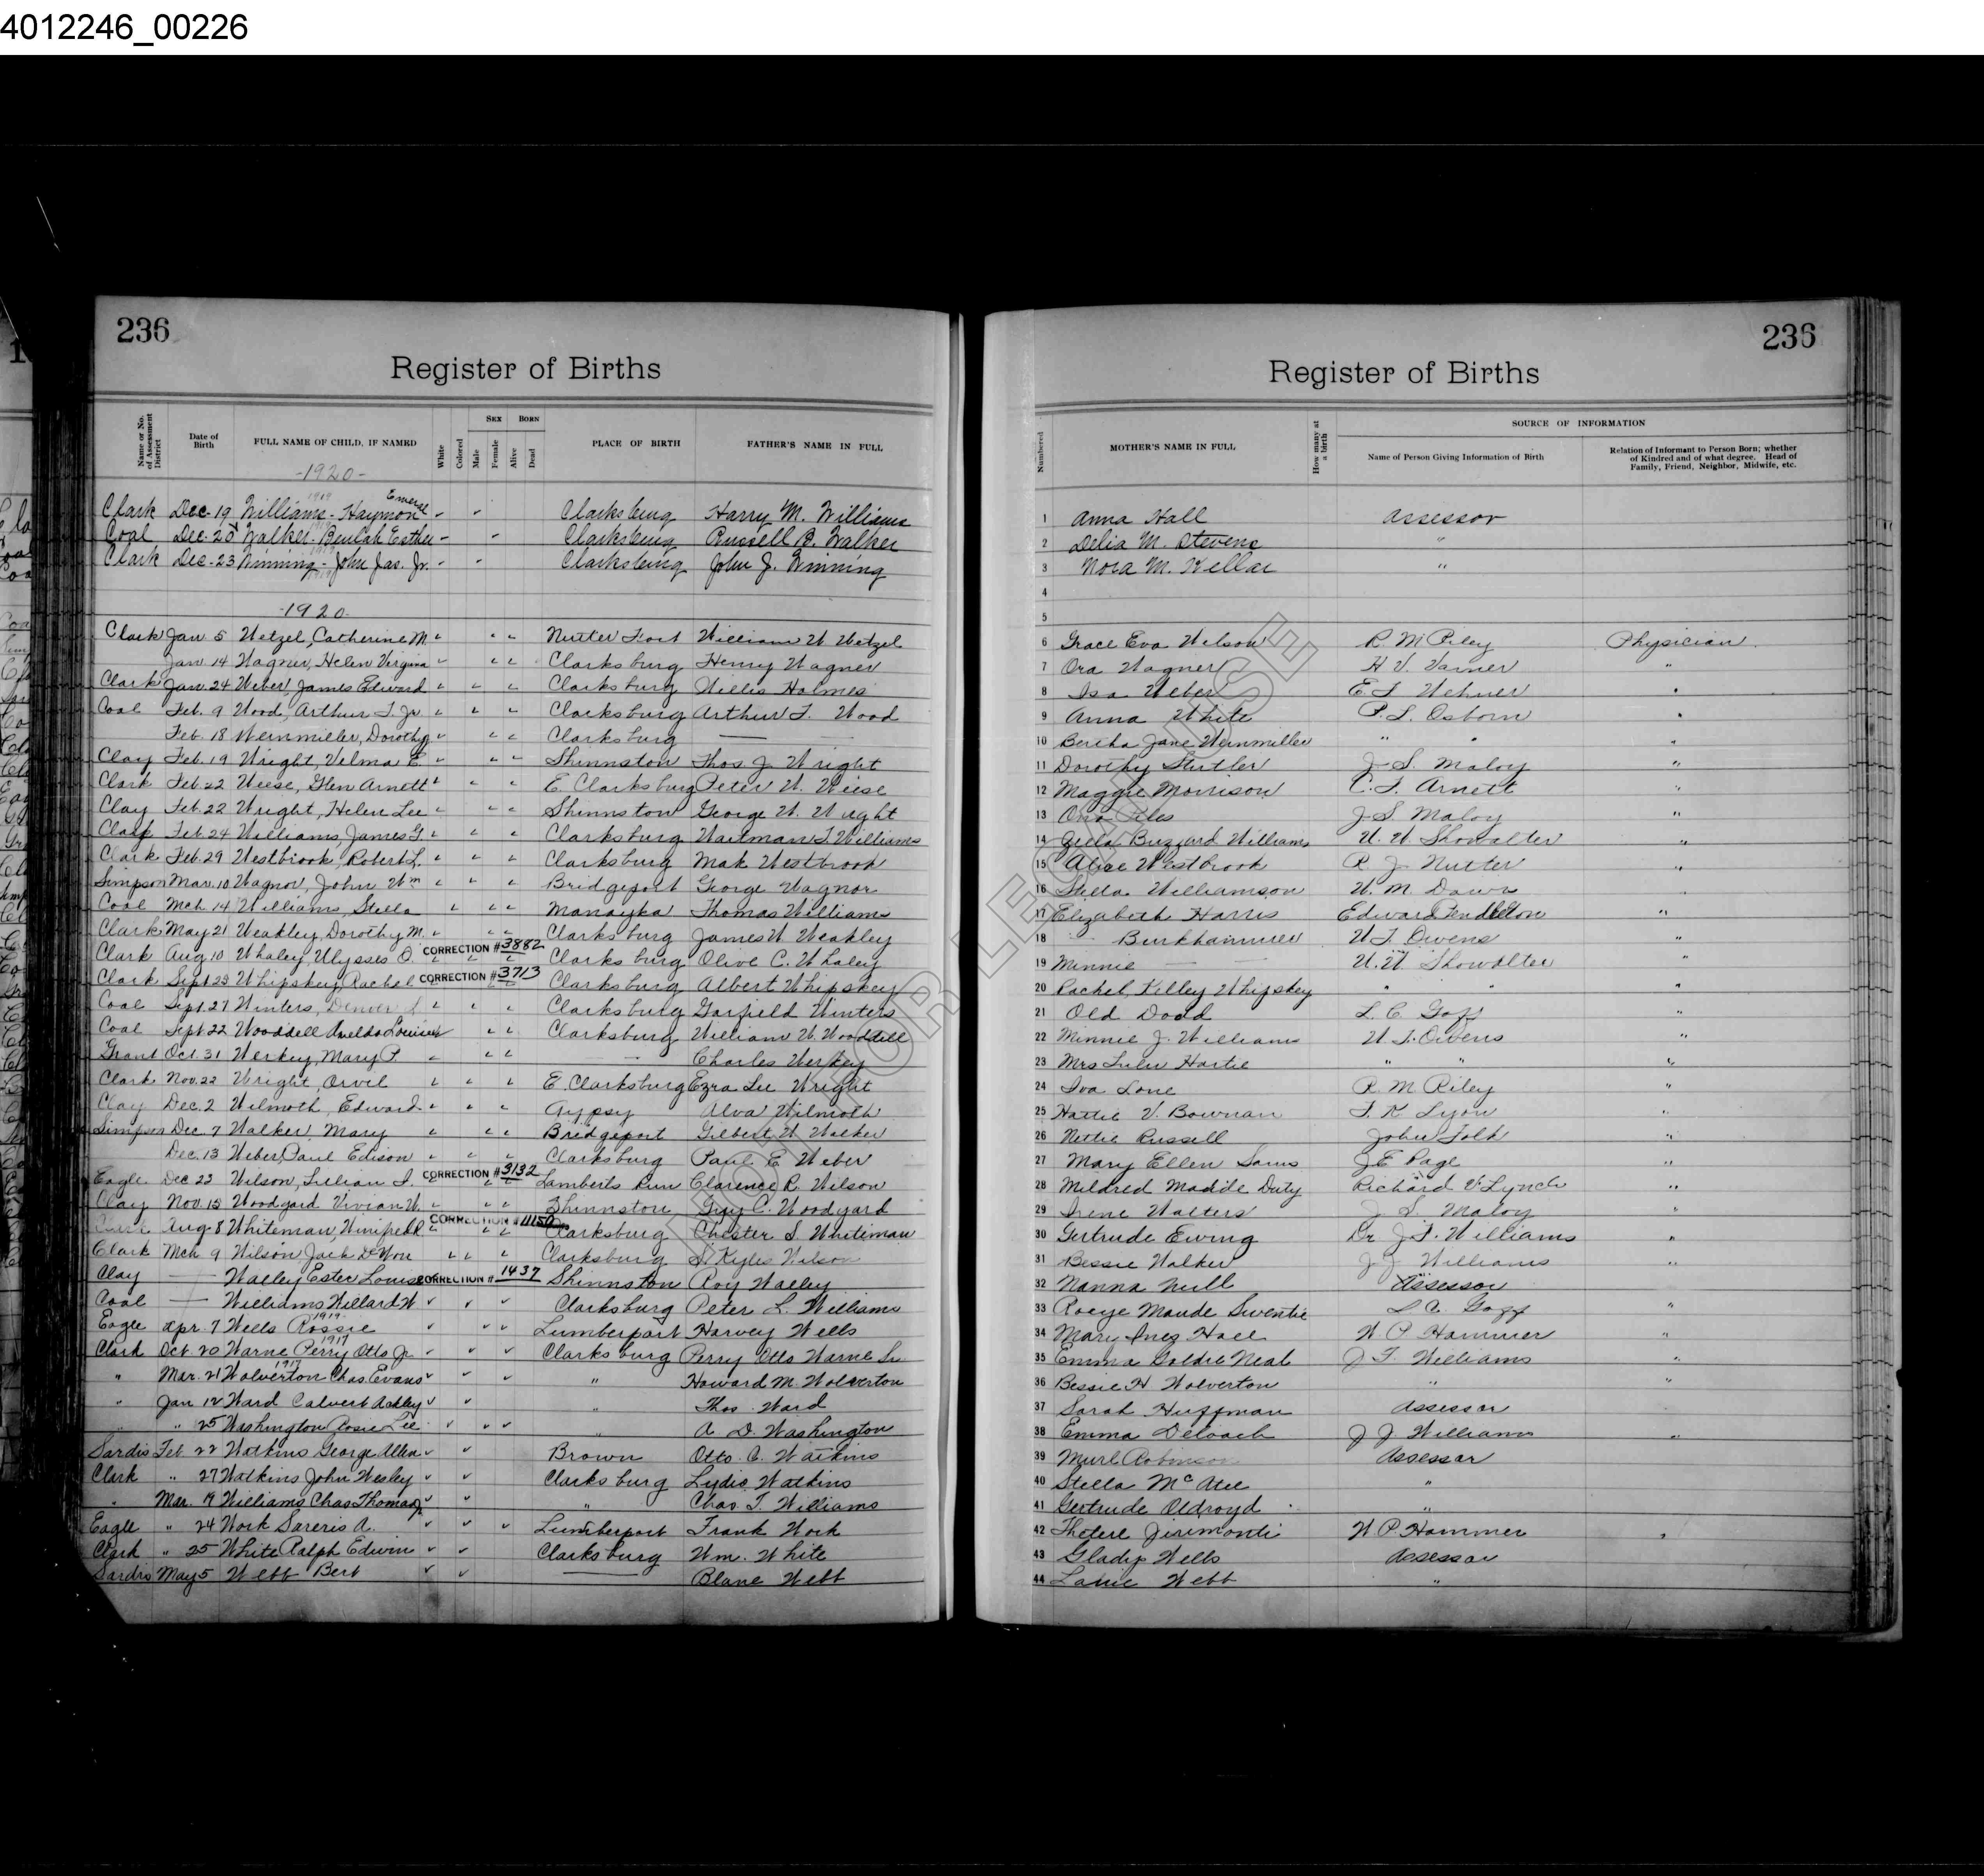 4012246_00226
236
Register of Births
Name or No. of Assessment District | Date of Birth | FULL NAME OF CHILD, IF NAMED | White | Colored | SEX Male | Female | BORN Alive | Dead | PLACE OF BIRTH | FATHER'S NAME IN FULL
-1920-
Clark Dec-19 Williams-Haymond Emeral 1919 Clarksburg Harry M. Williams
Coal Dec-20 Walker-Beulah Esther 1919 Clarksburg Russell B. Walker
Clark Dec-23 Winning-John Jas. Jr. 1919 Clarksburg John J. Winning
-1920-
Clark Jan 5 Wetzel, Catherine M. Nutter Fort William W Wetzel
Jan 14 Wagner, Helen Virginia Clarksburg Henry Wagner
Clark Jan. 24 Weber, James Edward Clarksburg Willis Holmes
Coal Feb. 9 Wood, Arthur T. Jr. Clarksburg Arthur T. Wood
Feb. 18 Wernmiller, Dorothy Clarksburg
Clay Feb. 19 Wright, Velma E. Shinnston Thos. J. Wright
Clark Feb. 22 Weese, Glen Arnett E. Clarksburg Peter W. Weise
Clay Feb. 22 Wright, Helen Lee Shinnston George W. Wright
Clark Feb. 24 Williams, James G. Clarksburg Waitman T. Williams
Clark Feb. 29 Westbrook, Robert L. Clarksburg Mak Westbrook
Simpson Mar. 10 Wagnor, John Wm Bridgeport George Wagnor
Coal Mch. 14 Williams, Stella Monayka Thomas Williams
Clark May 21 Weakley, Dorothy M. Clarksburg James W Weakley
Clark Aug. 10 Whaley, Ulysses O. CORRECTION #3882 Clarksburg Olive C. Whaley
Clark Sept 23 Whipskey, Rachel CORRECTION #3713 Clarksburg Albert Whipskey
Coal Sept. 27 Winters, Clarksburg Garfield Winters
Coal Sept 22 Wooddell Clarksburg William W. Wooddell
Grant Oct. 31 Werkey, Mary P. Charles Werkey
Clark Nov. 22 Wright, Orvil E. Clarksburg Ezra Lee Wright
Clay Dec. 2 Wilmoth, Edward Gypsy Alva Wilmoth
Simpson Dec. 7 Walker, Mary Bridgeport Gilbert W Walker
Dec. 13 Weber, Paul Edison Clarksburg Paul E Weber
Eagle Dec 23 Wilson, Lillian I. CORRECTION #3132 Lamberts Run Clarence R. Wilson
Clay Nov. 15 Woodyard Vivian W. Shinnston Guy C. Woodyard
Aug. 8 Whiteman, Winifred CORRECTION #11150 Clarksburg Chester S. Whiteman
Clark Mch 9 Wilson Jack DeYon Clarksburg S. Kyles Wilson
Clay Walley Ester Louise CORRECTION # 1437 Shinnston Roy Walley
Coal Williams Willard W Clarksburg Peter L. Williams
Eagle Apr. 7 Wells Rossie 1919 Lumberport Harvey Wells
Clark Oct 20 Warne Perry Otto Jr 1917 Clarksburg Perry Otto Warne Sr.
" Mar. 21 Wolverton Chas. Evans 1917 " Howard M. Wolverton
" Jan 12 Ward Calvert Ashley " Thos. Ward
" " 25 Washington Rosie Lee " A. D. Washington
Sardis Feb. 22 Watkins George Allen Brown Otto. C. Watkins
Clark " 27 Watkins John Wesley Clarksburg Lydio Watkins
" Mar. 19 Williams Chas Thomas " Chas. T. Williams
Eagle " 24 Work Sareris A. Lumberport Frank Work
Clark " 25 White Ralph Edwin Clarksburg Wm. White
Sardis May 5 Webb Bert Blane Webb
236
Register of Births
Numbered | MOTHER'S NAME IN FULL | How many at a birth | SOURCE OF INFORMATION
Name of Person Giving Information of Birth | Relation of Informant to Person Born; whether of Kindred and of what degree. Head of Family, Friend, Neighbor, Midwife, etc.
1 Anna Hall Assessor
2 Delia M. Stevens "
3 Nora M. Kellar "
4
5
6 Grace Eva Wilson R. M Riley Physician
7 Ora Wagner H V. Varner "
8 Isa Weber E. T Wehner "
9 Anna White P. L. Osborn "
10 Bertha Jane Wernmiller " " "
11 Dorothy Stutler J. S. Maloy "
12 Maggie Morrison C. F. Arnett "
13 Ona Iles J. S. Maloy "
14 Buzzard Williams W. W. Showalter "
15 Alice Westbrook R. J. Nutter "
16 Stella Williamson W. M. Davis
17 Elizabeth Harris Edward Pendleton "
18 Burkhammer W T. Owens "
19 Minnie W. W. Showalter "
20 Rachel Kelley Whipskey " " "
21 Old Dodd L. C. Goff "
22 Minnie J. Williams W. T. Owens "
23 Mrs Lulu Hartie " " "
24 Iva Lone R. M Riley "
25 Hattie V. Bowman F. K Lyon "
26 Nettie Russell John Folk "
27 Mary Ellen Sams J E Page "
28 Mildred Maddie Duty Richard V Lynch "
29 Irene Walters J. S. Maloy "
30 Gertrude Ewing Dr J. F. Williams "
31 Bessie Walker J J Williams "
32 Nanna Null Assessor
33 Roeye Maude Swentie L. C. Goff "
34 Mary Inez Hall W. P Hammer "
35 Emma Goldie Neal J F. Williams "
36 Bessie H. Wolverton " "
37 Sarah Huffman Assessor
38 Emma Deloach J J Williams "
39 Murl Robinson Assessor
40 Stella McAtee "
41 Gertrude Oldroyd "
42 W. P. Hammer "
43 Gladys Wells Assessor
44 Webb "
FOR LEGAL USE